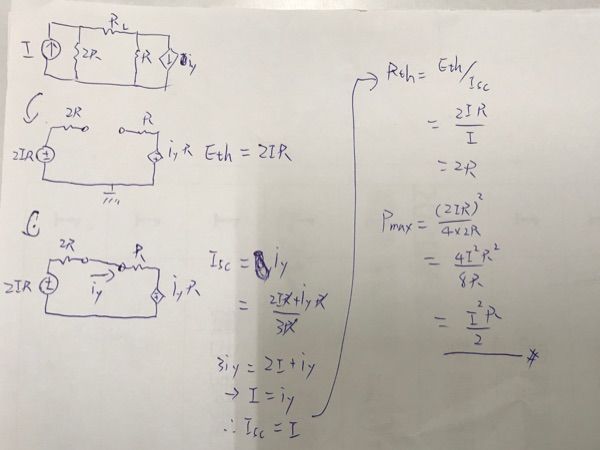 R_L
I 2R R i_y
2R R
2IR i_y R E_th = 2IR
2R R
2IR i_y i_y R
I_sc = i_y
= (2IR + i_y R)/3R
3i_y = 2I + i_y
→ I = i_y
∴ I_sc = I
R_th = E_th/I_sc
= 2IR/I
= 2R
P_max = (2IR)²/(4×2R)
= 4I²R²/8R
= I²R/2 #